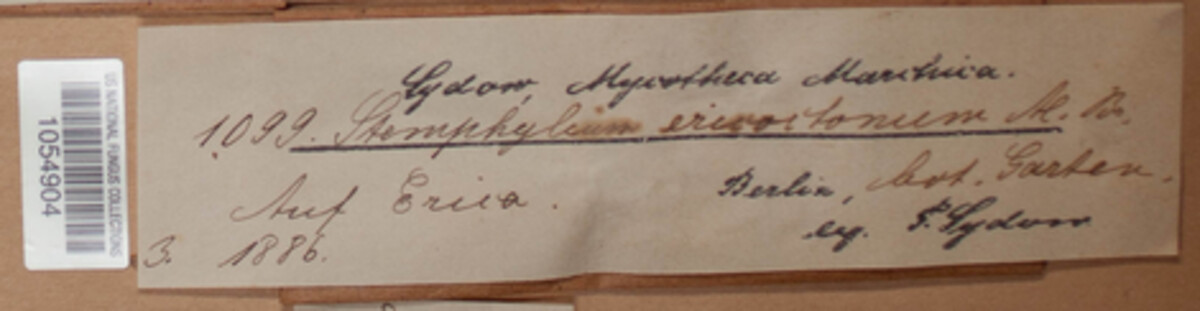 US NATIONAL FUNGUS COLLECTIONS
1054904
Sydow, Mycotheca Marchica.
1099. Stemphylium ericoctonum A. Br.
Auf Erica.
Berlin, bot. Garten.
3. 1886.
leg. P. Sydow